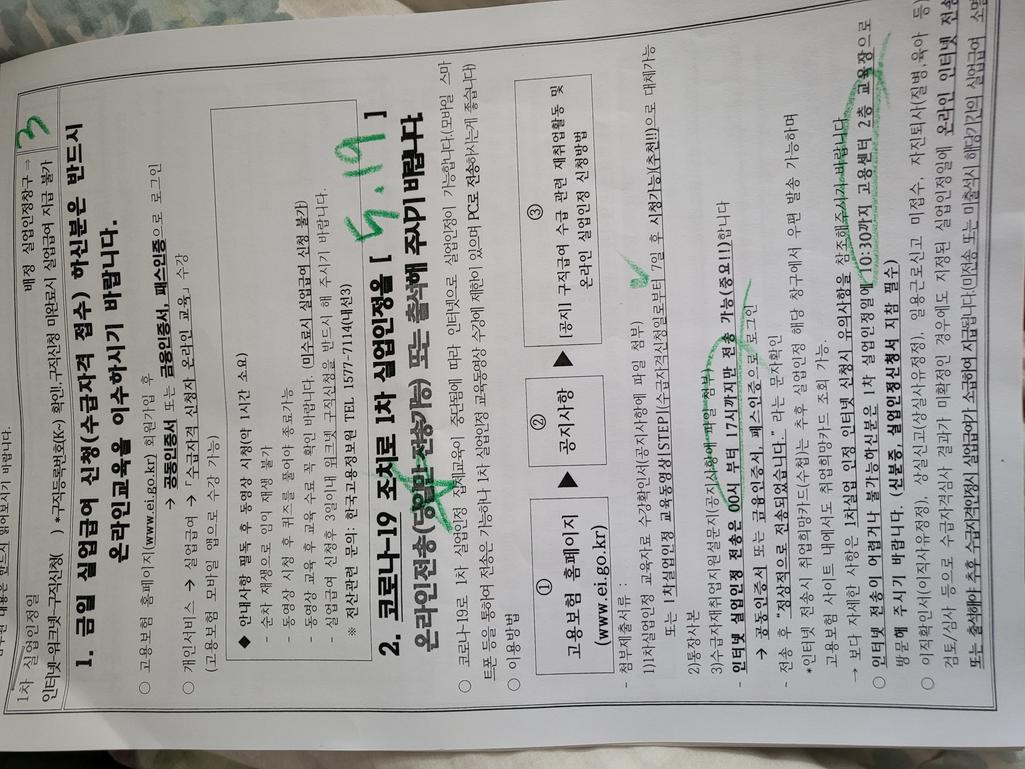 내용은 반드시 읽어보시기 바랍니다.
1차 실업인정일 배정 실업인정창구 → 3
인터넷 워크넷 구직신청( ) *구직등록번호(K-) 확인!, 구직신청 미완료시 실업급여 지급 불가
1. 금일 실업급여 신청(수급자격 접수) 하신분은 반드시
온라인교육을 이수하시기 바랍니다.
○ 고용보험 홈페이지(www.ei.go.kr) 회원가입 후
→ 공동인증서 또는 금융인증서, 패스인증으로 로그인
○ 개인서비스 → 실업급여 → 「수급자격 신청자 온라인 교육」 수강
(고용보험 모바일 앱으로 수강 가능)
◆ 안내사항 필독 후 동영상 시청(약 1시간 소요)
순차 재생으로 임의 재생 불가
- 동영상 시청 후 퀴즈를 풀어야 종료가능
- 동영상 교육 후 교육수료 꼭 확인 바랍니다. (미수료시 실업급여 신청 불가)
- 실업급여 신청후 3일이내 워크넷 구직신청을 반드시 해 주시기 바랍니다.
※ 전산관련 문의: 한국고용정보원 TEL 1577-7114(내선3)
2. 코로나-19 조치로 1차 실업인정을 [ 5.19 ]
온라인전송(당일만 전송가능) 또는 출석해 주시기 바랍니다.
○ 코로나-19로 1차 실업인정 집체교육이 중단됨에 따라 인터넷으로 실업인정이 가능합니다.(모바일 스마
트폰 등을 통하여 전송은 가능하나 1차 실업인정 교육동영상 수강에 제한이 있으며 PC로 전송하시는게 좋습니다)
○ 이용방법
① 고용보험 홈페이지 (www.ei.go.kr) ▶ ② 공지사항 ▶ ③ [공지] 구직급여 수급 관련 재취업활동 및 온라인 실업인정 신청방법
- 첨부제출서류 :
1)1차실업인정 교육자료 수강확인서(공지사항에 파일 첨부)
또는 1차실업인정 교육동영상[STEP1(수급자격신청일로부터 7일 후 시청가능)(추천!!)으로 대체가능
2)통장사본
3)수급자재취업지원설문지(공지사항에 파일 첨부)
- 인터넷 실업인정 전송은 00시 부터 17시까지만 전송 가능(중요!!)합니다
→ 공동인증서 또는 금융인증서, 패스인증으로 로그인
- 전송 후 "정상적으로 전송되었습니다." 라는 문자확인
*인터넷 전송시 취업희망카드(수첩)는 추후 실업인정 해당 창구에서 우편 발송 가능하며
고용보험 사이트 내에서도 취업희망카드 조회 가능.
→ 보다 자세한 사항은 1차실업 인정 인터넷 신청시 유의사항을 참조해주시기 바랍니다.
○ 인터넷 전송이 어렵거나 불가능하신분은 1차 실업인정일에 10:30까지 고용센터 2층 교육장으로
방문해 주시기 바랍니다. (신분증, 실업인정신청서 지참 필수)
○ 이직확인서(이직사유정정), 상실신고(상실사유정정), 일용근로신고 미접수, 자진퇴사(질병,육아 등)
검토/심사 등으로 수급자격심사 결과가 미확정인 경우에도 지정된 실업인정일에 온라인 인터넷 전송
또는 출석해야 추후 수급자격인정시 실업급여가 소급하여 지급됩니다.(미전송 또는 미출석시 해당기간의 실업급여 소멸